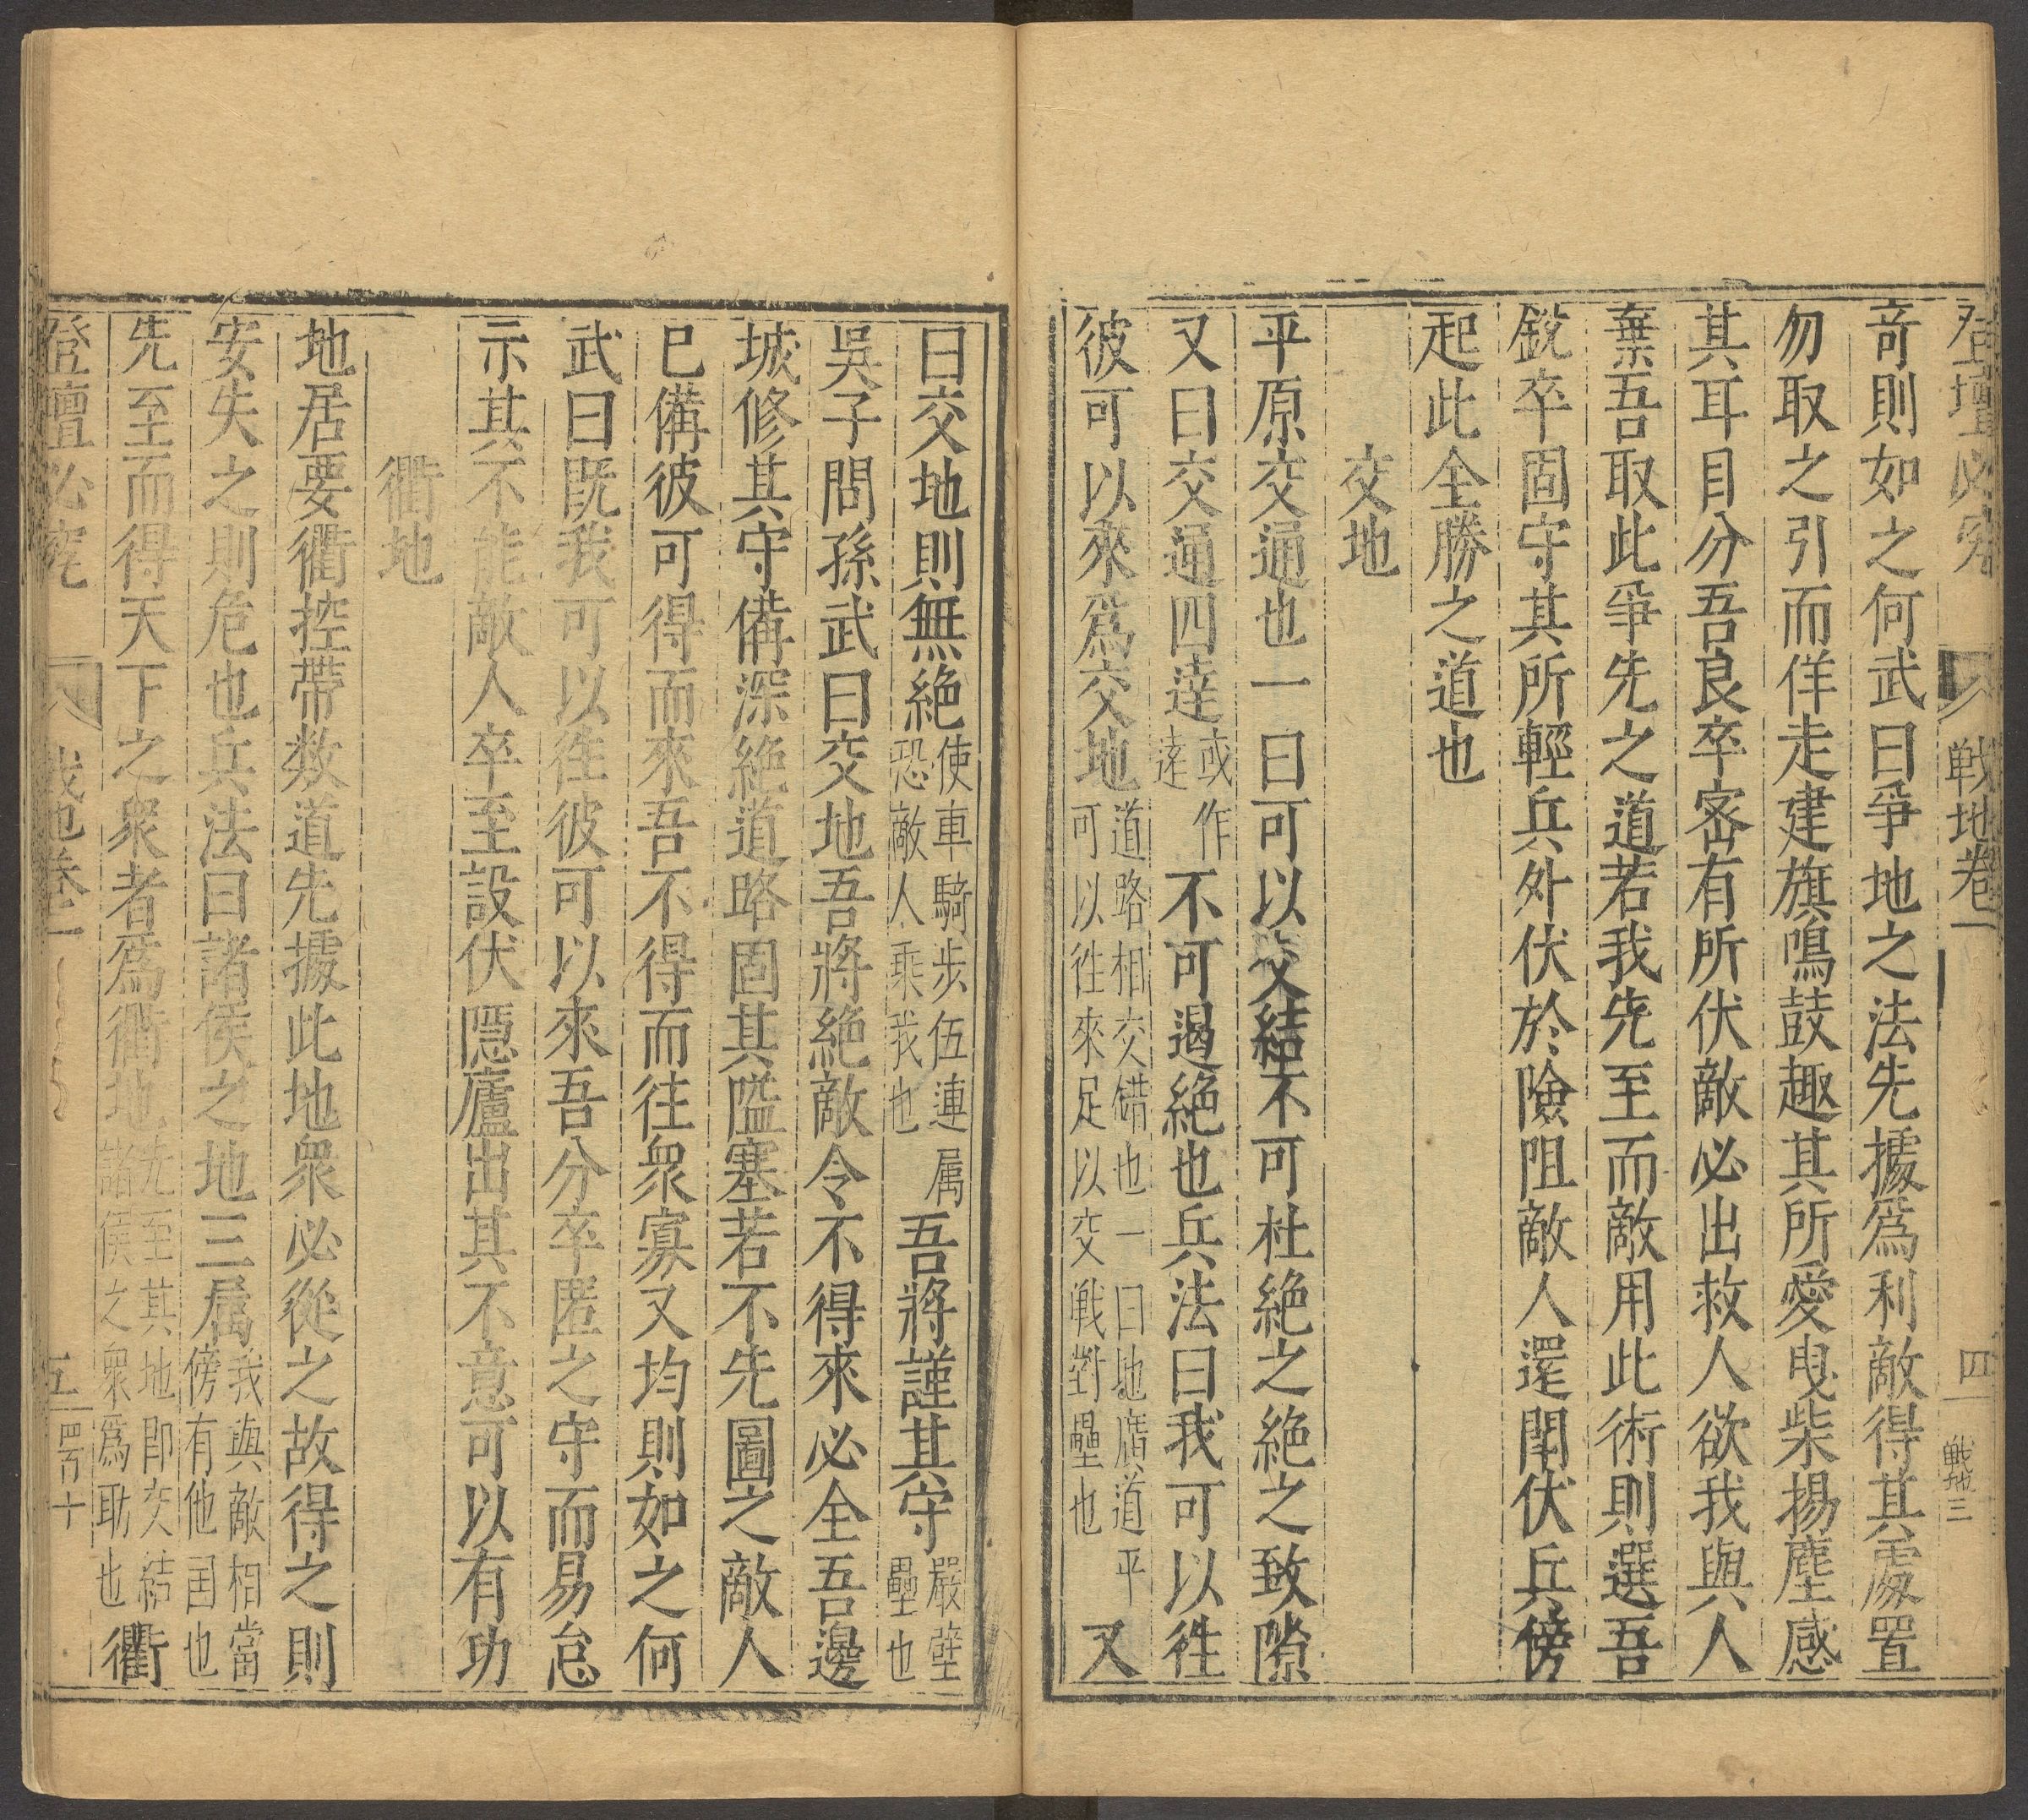 登壇必究 戰地卷一 四 戰地三
竒則如之何武曰爭地之法先據爲利敵得其處置
勿取之引而佯走建旗鳴鼓趣其所愛曳柴揚塵感
其耳目分吾良卒宻有所伏敵必出救人欲我與人
棄吾取此爭先之道若我先至而敵用此術則選吾
銳卒固守其所輕兵外伏於險阻敵人還鬪伏兵傍
起此全勝之道也
交地
平原交通也一曰可以交結不可杜絶之絶之致隙
又曰交通四達或作逹不可遏絶也兵法曰我可以徃
彼可以來爲交地道路相交錯也一曰地廣道平可以徃來足以交戰對壘也又
曰交地則無絶使車騎步伍連属恐敵人乘我也吾將謹其守嚴壁壘也
吳子問孫武曰交地吾將絶敵令不得來必全吾邊
城修其守備深絶道路固其隘塞若不先圖之敵人
已備彼可得而來吾不得而往衆寡又均則如之何
武曰既我可以徃彼可以來吾分卒匿之守而易怠
示其不能敵人卒至設伏隱廬出其不意可以有功
衢地
地居要衢控帶数道先據此地衆必從之故得之則
安失之則危也兵法曰諸侯之地三属我與敵相當傍有他国也
先至而得天下之衆者爲衢地先至其地即交結諸侯之衆爲助也衢
登壇必究 戰地卷一 五 四百十